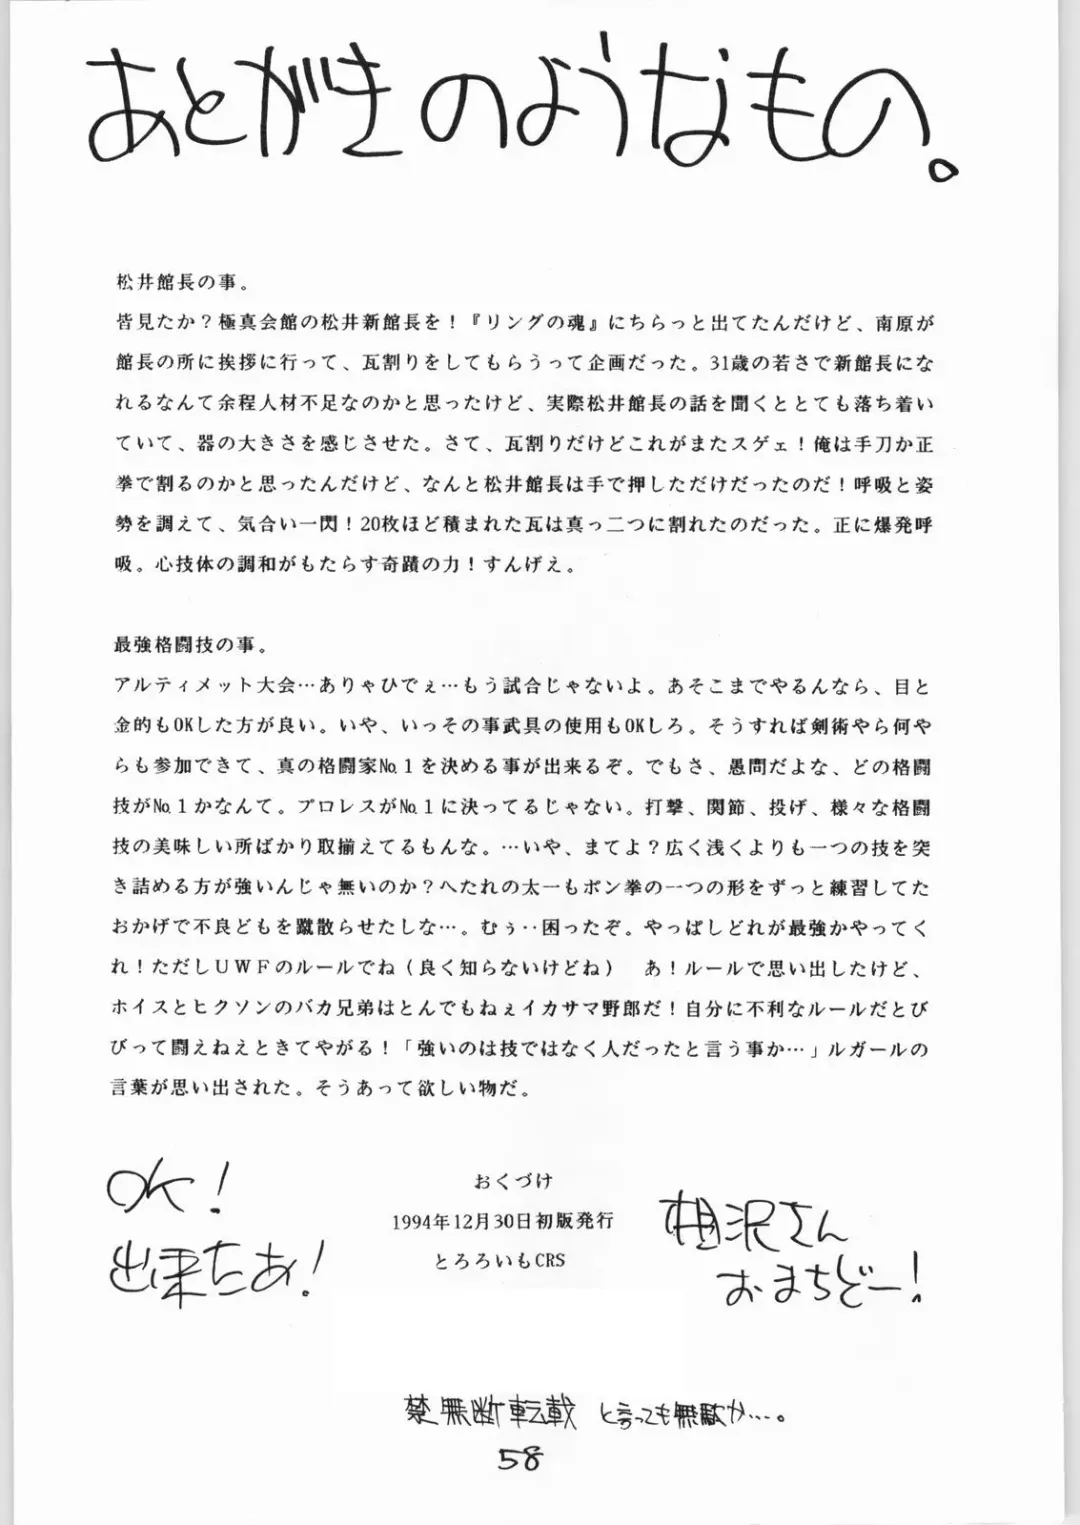 あとがきのようなもの。
松井館長の事。
皆見たか？極真会館の松井新館長を！『リングの魂』にちらっと出てたんだけど、南原が
館長の所に挨拶に行って、瓦割りをしてもらうって企画だった。31歳の若さで新館長にな
れるなんて余程人材不足なのかと思ったけど、実際松井館長の話を聞くととても落ち着い
ていて、器の大きさを感じさせた。さて、瓦割りだけどこれがまたスゲェ！俺は手刀か正
拳で割るのかと思ったんだけど、なんと松井館長は手で押しただけだったのだ！呼吸と姿
勢を調えて、気合い一閃！20枚ほど積まれた瓦は真っ二つに割れたのだった。正に爆発呼
吸。心技体の調和がもたらす奇蹟の力！すんげえ。
最強格闘技の事。
アルティメット大会…ありゃひでぇ…もう試合じゃないよ。あそこまでやるんなら、目と
金的もOKした方が良い。いや、いっその事武具の使用もOKしろ。そうすれば剣術やら何や
らも参加できて、真の格闘家№1を決める事が出来るぞ。でもさ、愚問だよな、どの格闘
技が№1かなんて。プロレスが№1に決ってるじゃない。打撃、関節、投げ、様々な格闘
技の美味しい所ばかり取揃えてるもんな。…いや、まてよ？広く浅くよりも一つの技を突
き詰める方が強いんじゃ無いのか？へたれの太一もボン拳の一つの形をずっと練習してた
おかげで不良どもを蹴散らせたしな…。むぅ‥困ったぞ。やっぱしどれが最強かやってく
れ！ただしＵＷＦのルールでね（良く知らないけどね）　あ！ルールで思い出したけど、
ホイスとヒクソンのバカ兄弟はとんでもねぇイカサマ野郎だ！自分に不利なルールだとび
びって闘えねえときてやがる！「強いのは技ではなく人だったと言う事か…」ルガールの
言葉が思い出された。そうあって欲しい物だ。
OK！
出来たあ！
おくづけ
1994年12月30日初版発行
とろろいもCRS
相沢さん
おまちどー！
禁無断転載 と言っても無駄か…。
58